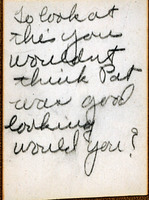 To look at
this you
wouldn't
think Pat
was good
looking
would you?